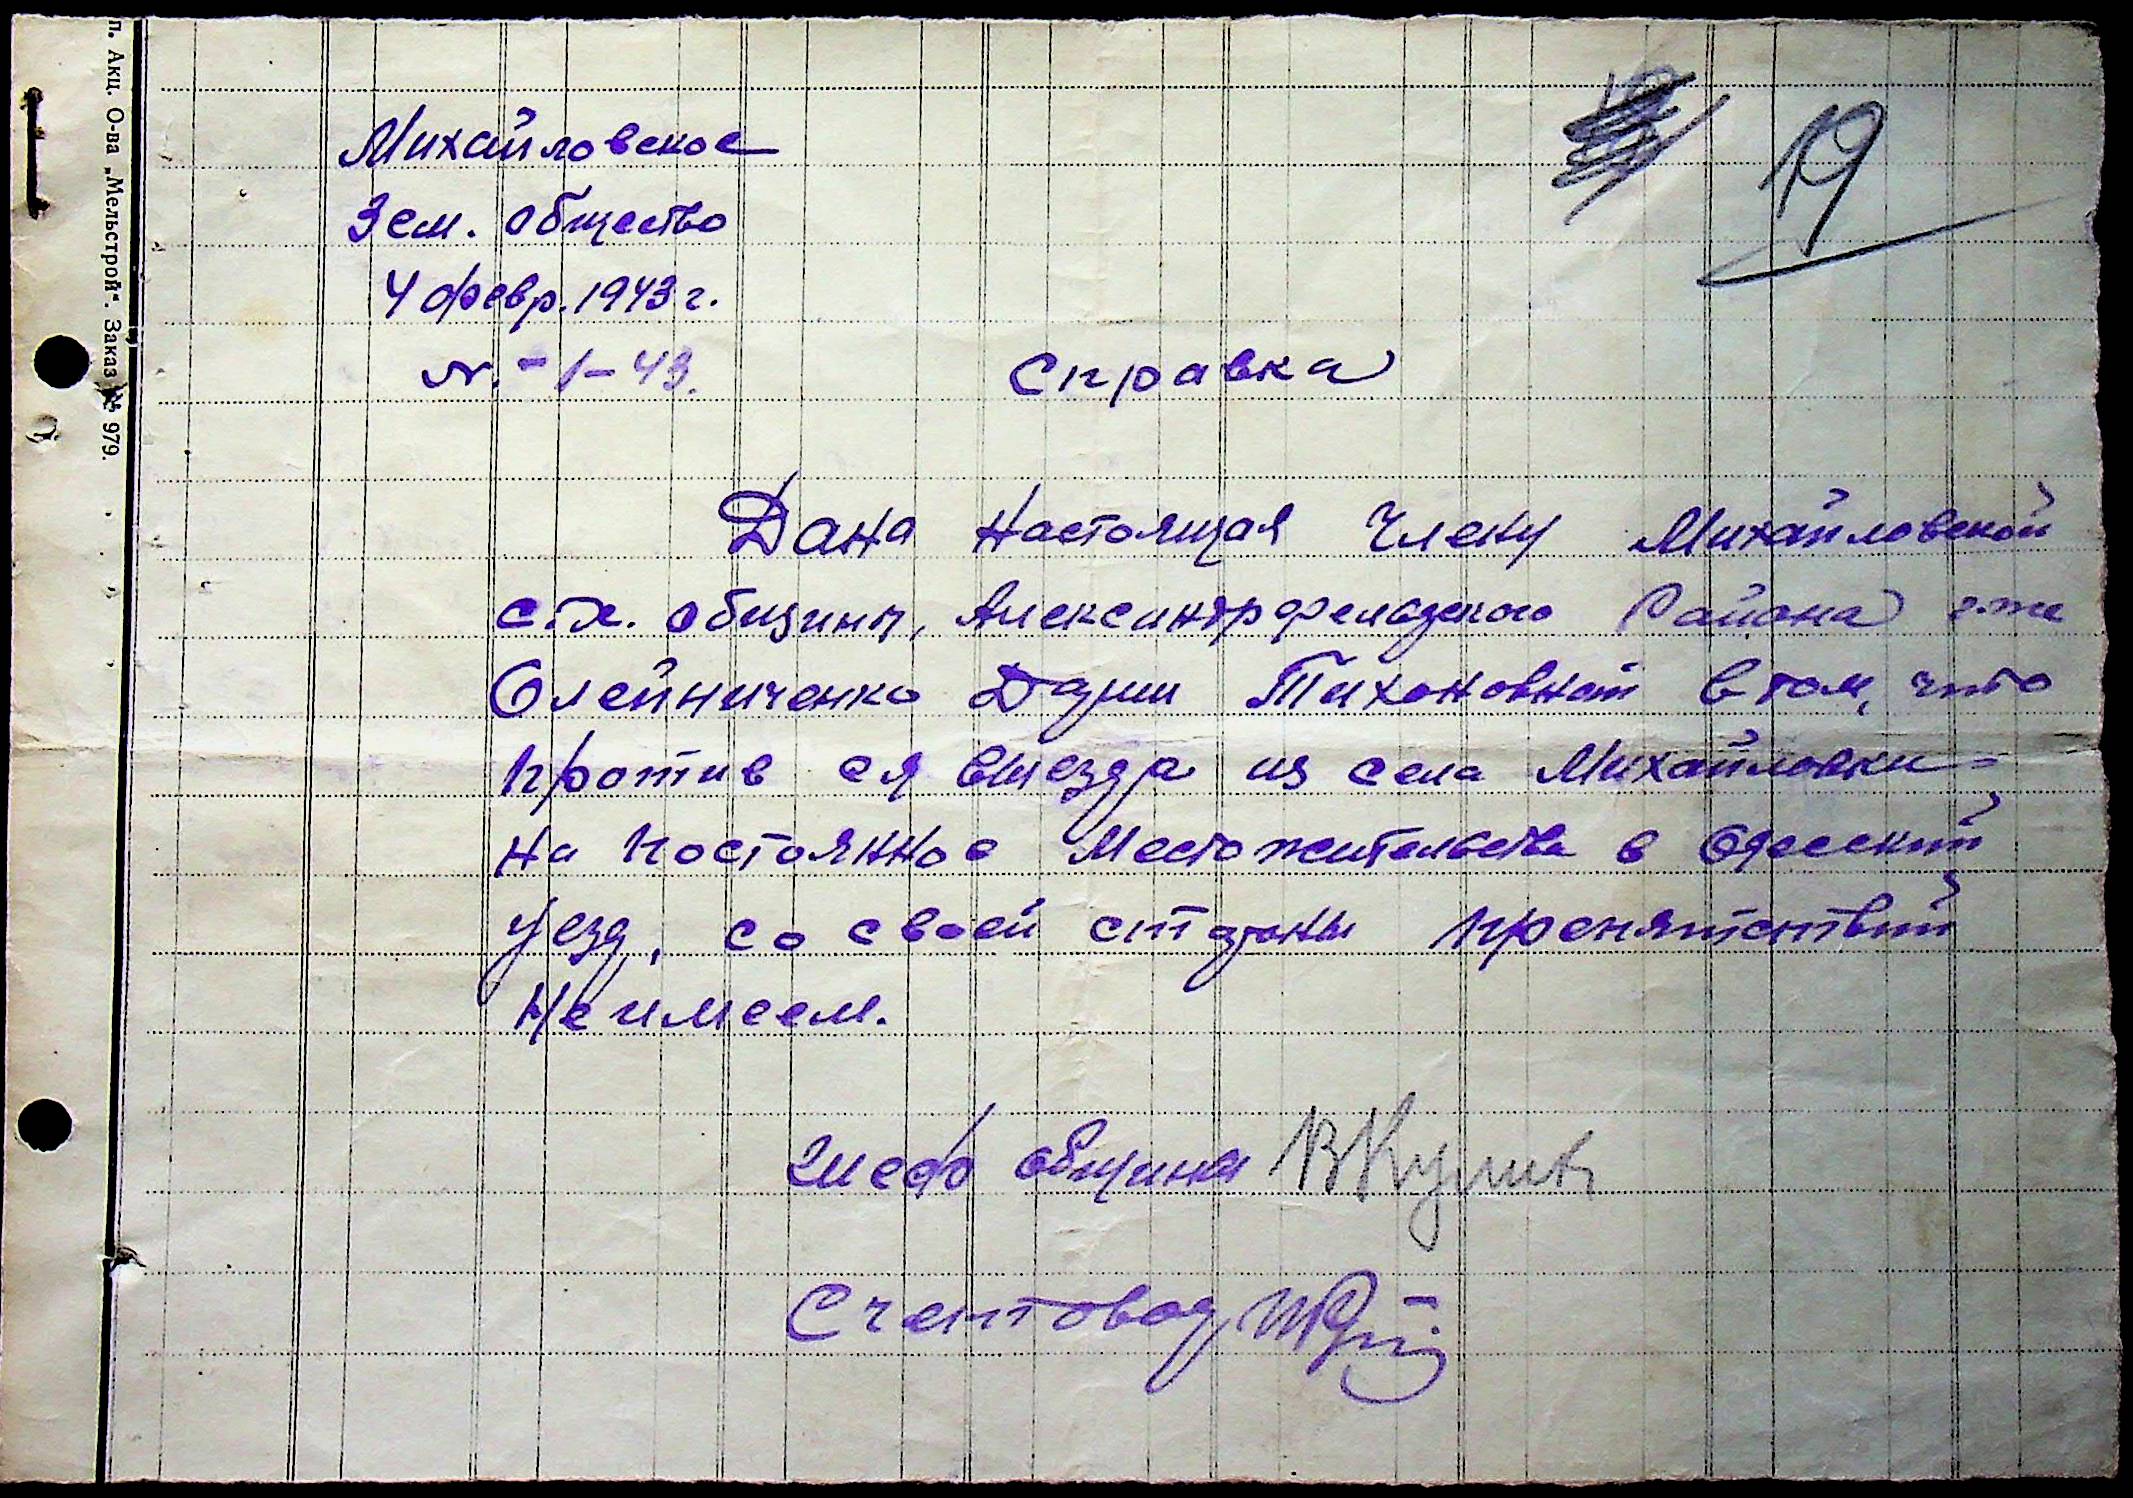 п. Акц. О-ва „Мельстрой“. Заказ № 979.
19
Михайловское
Зем. общество
4 февр. 1943 г.
N. - 1 - 43.
Справка
Дана настоящая члену Михайловской
с.х. общины, Александрфельдского Района г-же
Олейниченко Дарии Тихоновной в том, что
против ея выезда из села Михайловки
на постоянное местожительства в Одесский
уезд, со своей стороны препятствий
не имеем.
Шеф общины ВКулик
Счетовод